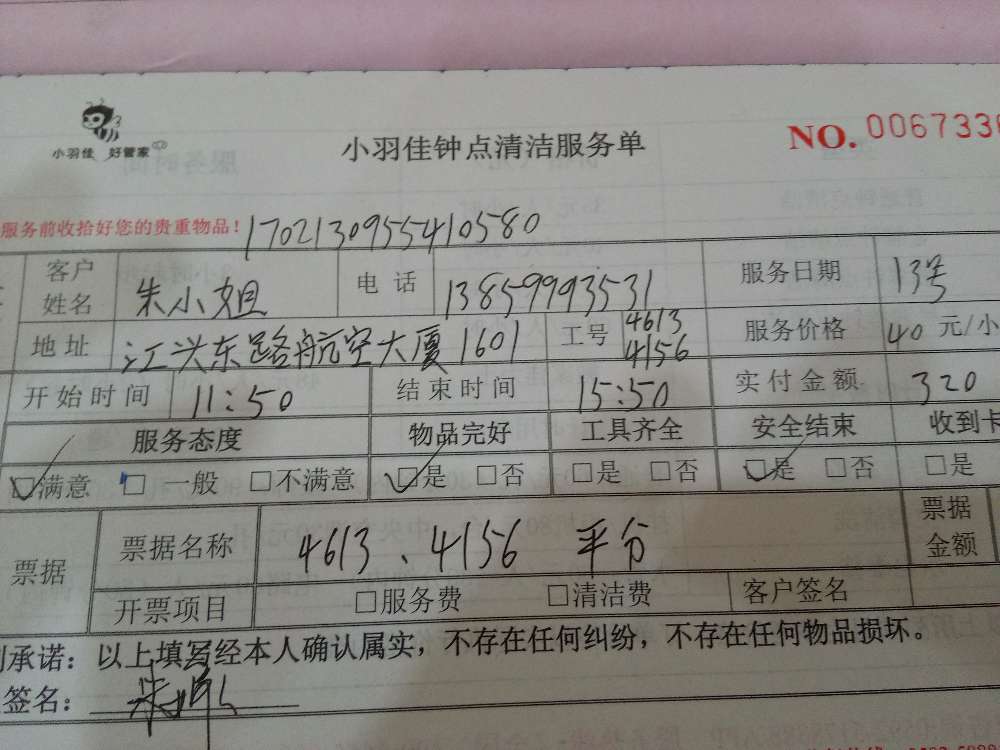 小羽佳 好管家
小羽佳钟点清洁服务单
NO. 0067333
服务前收拾好您的贵重物品! 1702130955410580
客户姓名 朱小姐 电话 13859993531 服务日期 13号
地址 江兴东路航空大厦1601 工号 4613 4156 服务价格 40 元/小
开始时间 11:50 结束时间 15:50 实付金额 320
服务态度 物品完好 工具齐全 安全结束 收到卡
☑满意 □一般 □不满意 ☑是 □否 □是 □否 ☑是 □否 □是
票据 票据名称 4613、4156 平分 票据金额
开票项目 □服务费 □清洁费 客户签名
承诺:以上填写经本人确认属实,不存在任何纠纷,不存在任何物品损坏。
签名: